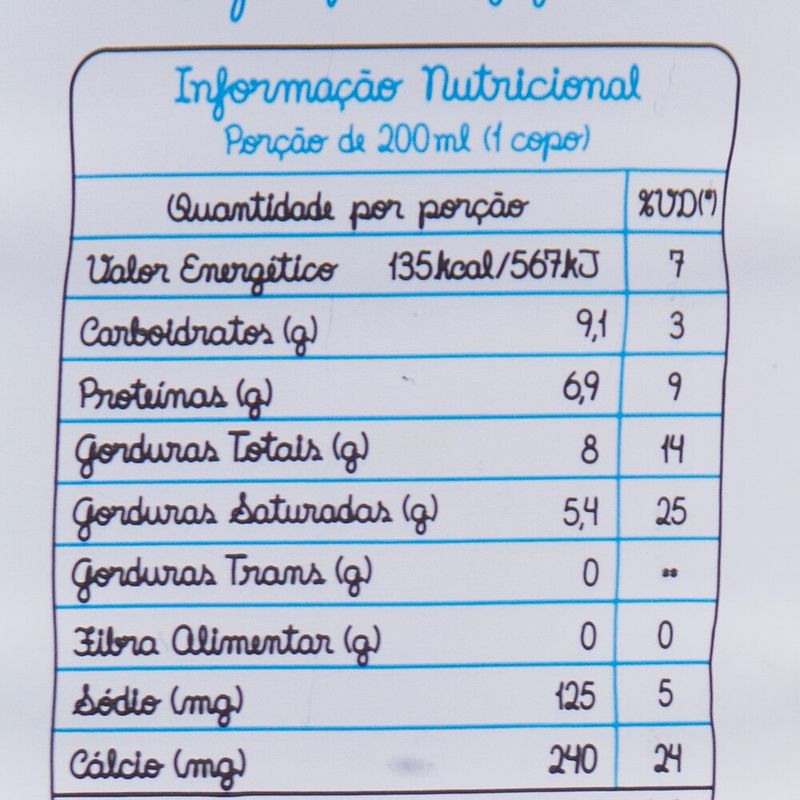 Informação Nutricional
Porção de 200ml (1 copo)
Quantidade por porção %VD(*)
Valor Energético 135kcal/567kJ 7
Carboidratos (g) 9,1 3
Proteínas (g) 6,9 9
Gorduras Totais (g) 8 14
Gorduras Saturadas (g) 5,4 25
Gorduras Trans (g) 0 **
Fibra Alimentar (g) 0 0
Sódio (mg) 125 5
Cálcio (mg) 240 24